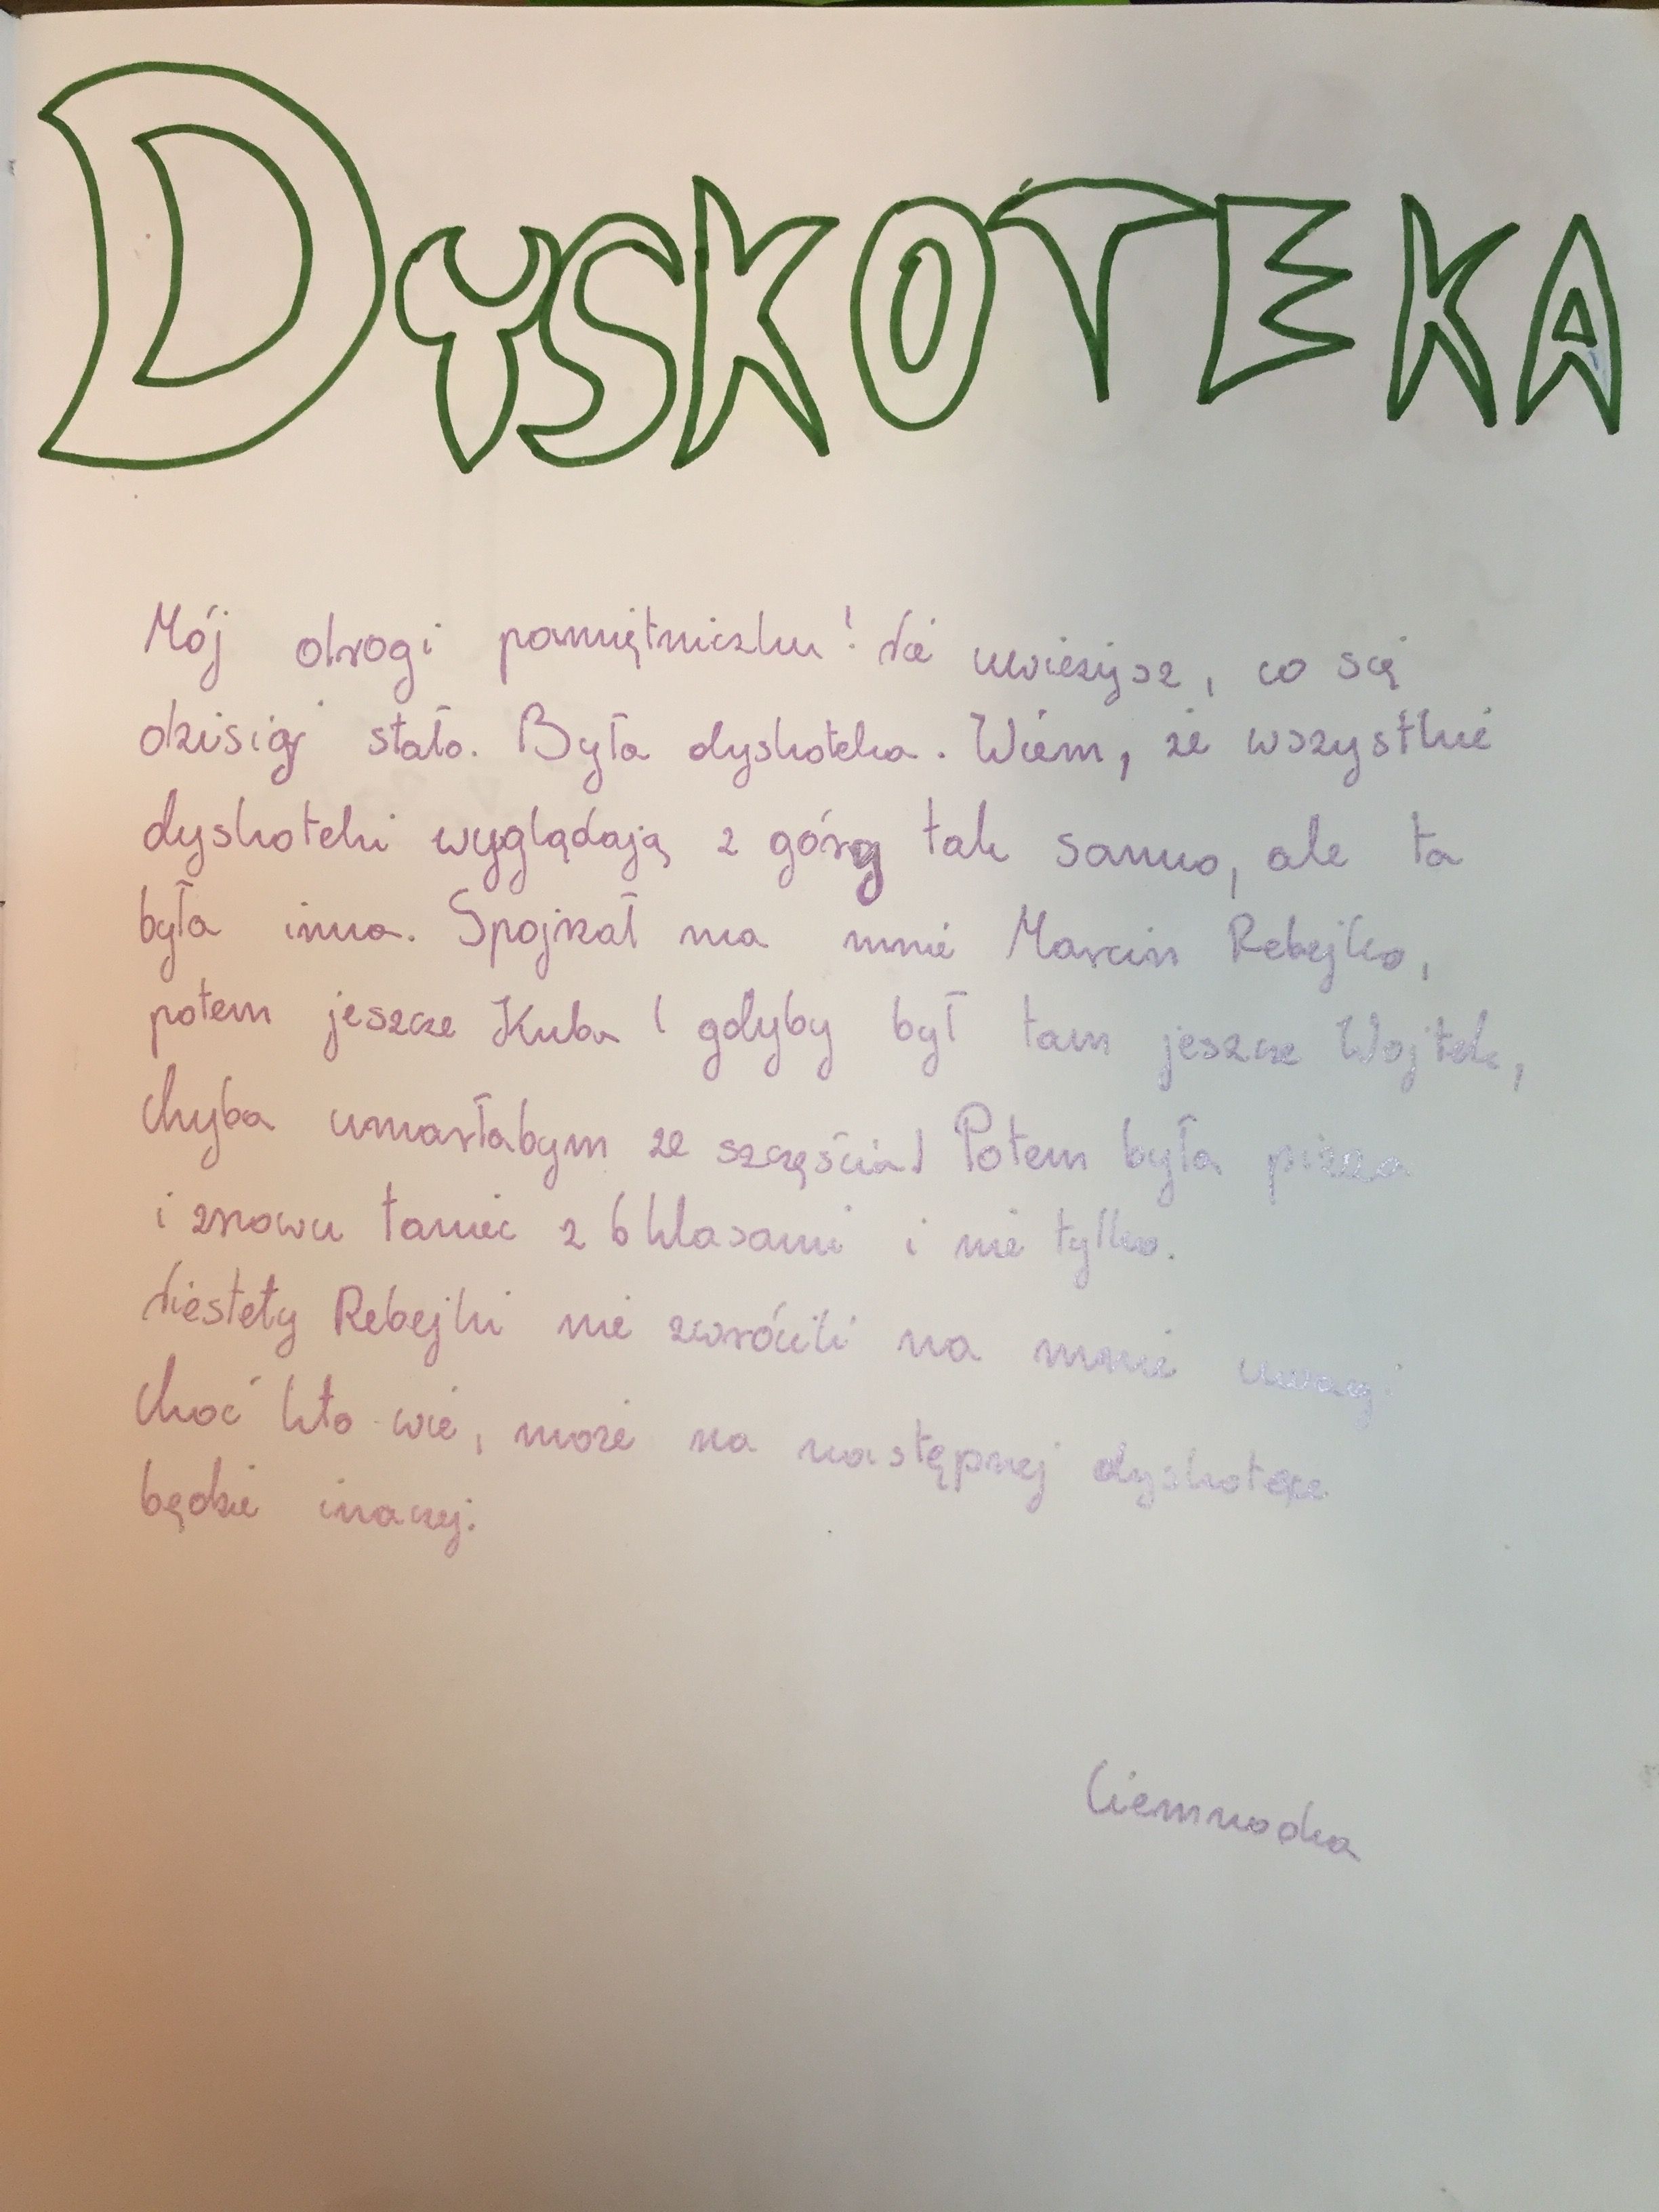 DYSKOTEKA
Mój drogi pamiętniczku! Nie uwieżysz, co się
dzisiaj stało. Była dyskoteka. Wiem, że wszystkie
dyskoteki wyglądają z góry tak samo, ale ta
była inna. Spojrzał na mnie Marcin Rebejko,
potem jeszcze Kuba i gdyby był tam jeszcze Wojtek,
chyba umarłabym ze szczęścia! Potem była pizza
i znowu taniec z 6 klasami i nie tylko.
Niestety Rebejki nie zwrócili na mnie uwagi
choć kto wie, może na następnej dyskotece
będzie inaczej.
Ciemnodka